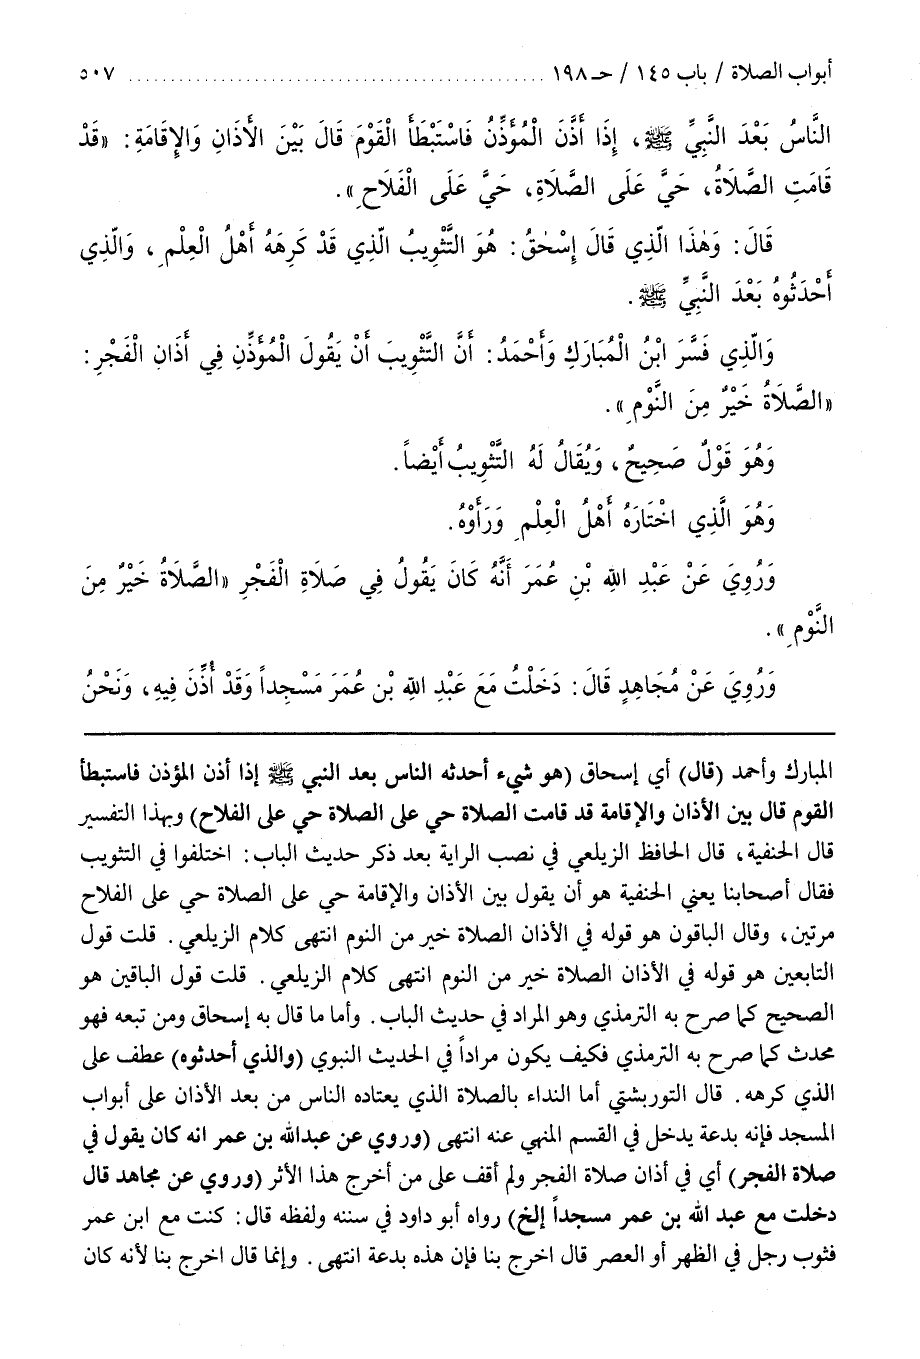 أبواب الصلاة / باب ١٤٥ / حـ ١٩٨ ................................................ ٥٠٧
النَّاسُ بَعْدَ النَّبِيِّ ﷺ، إِذَا أَذَّنَ الْمُؤَذِّنُ فَاسْتَبْطَأَ الْقَوْمَ قَالَ بَيْنَ الْأَذَانِ وَالإِقَامَةِ: «قَدْ
قَامَتِ الصَّلَاةُ، حَيَّ عَلَى الصَّلَاةِ، حَيَّ عَلَى الْفَلَاحِ».
قَالَ: وَهٰذَا الَّذِي قَالَ إِسْحٰقُ: هُوَ التَّثْوِيبُ الَّذِي قَدْ كَرِهَهُ أَهْلُ الْعِلْمِ، وَالَّذِي
أَحْدَثُوهُ بَعْدَ النَّبِيِّ ﷺ.
وَالَّذِي فَسَّرَ ابْنُ الْمُبَارَكِ وَأَحْمَدُ: أَنَّ التَّثْوِيبَ أَنْ يَقُولَ الْمُؤَذِّنِ فِي أَذَانِ الْفَجْرِ:
«الصَّلَاةُ خَيْرٌ مِنَ النَّوْمِ».
وَهُوَ قَوْلٌ صَحِيحٌ، وَيُقَالُ لَهُ التَّثْوِيبُ أَيْضاً.
وَهُوَ الَّذِي اخْتَارَهُ أَهْلُ الْعِلْمِ وَرَأَوْهُ.
وَرُوِيَ عَنْ عَبْدِ اللهِ بْنِ عُمَرَ أَنَّهُ كَانَ يَقُولُ فِي صَلَاةِ الْفَجْرِ «الصَّلَاةُ خَيْرٌ مِنَ
النَّوْمِ».
وَرُوِيَ عَنْ مُجَاهِدٍ قَالَ: دَخَلْتُ مَعَ عَبْدِ اللهِ بْنِ عُمَرَ مَسْجِداً وَقَدْ أُذِّنَ فِيهِ، وَنَحْنُ
المبارك وأحمد (قال) أي إسحاق (هو شيء أحدثه الناس بعد النبي ﷺ إذا أذن المؤذن فاستبطأ
القوم قال بين الأذان والإقامة قد قامت الصلاة حي على الصلاة حي على الفلاح) وبهذا التفسير
قال الحنفية، قال الحافظ الزيلعي في نصب الراية بعد ذكر حديث الباب: اختلفوا في التثويب
فقال أصحابنا يعني الحنفية هو أن يقول بين الأذان والإقامة حي على الصلاة حي على الفلاح
مرتين، وقال الباقون هو قوله في الأذان الصلاة خير من النوم انتهى كلام الزيلعي. قلت قول
التابعين هو قوله في الأذان الصلاة خير من النوم انتهى كلام الزيلعي. قلت قول الباقين هو
الصحيح كما صرح به الترمذي وهو المراد في حديث الباب. وأما ما قال به إسحاق ومن تبعه فهو
محدث كما صرح به الترمذي فكيف يكون مراداً في الحديث النبوي (والذي أحدثوه) عطف على
الذي كرهه. قال التوربشتي أما النداء بالصلاة الذي يعتاده الناس من بعد الأذان على أبواب
المسجد فإنه بدعة يدخل في القسم المنهي عنه انتهى (وروي عن عبدالله بن عمر انه كان يقول في
صلاة الفجر) أي في أذان صلاة الفجر ولم أقف على من أخرج هذا الأثر (وروي عن مجاهد قال
دخلت مع عبد الله بن عمر مسجداً إلخ) رواه أبو داود في سننه ولفظه قال: كنت مع ابن عمر
فثوب رجل في الظهر أو العصر قال اخرج بنا فإن هذه بدعة انتهى. وإنما قال اخرج بنا لأنه كان